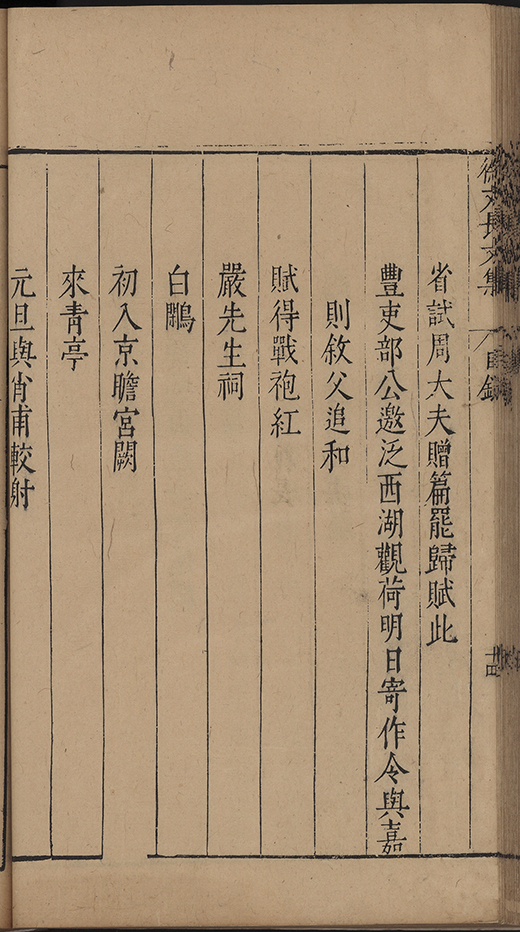 徐文長文集 目錄 十四
省試周大夫贈篇罷歸賦此
豐吏部公邀泛西湖觀荷明日寄作令與嘉
則敘父追和
賦得戰袍紅
嚴先生祠
白鷴
初入京瞻宮闕
來青亭
元旦與肖甫較射